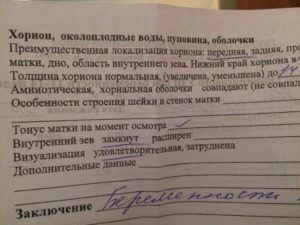 Хорион, околоплодные воды, пуповина, оболочки
Преимущественная локализация хориона: передняя, задняя, пра
матки, дно, область внутреннего зева. Нижний край хориона в
Толщина хориона нормальная, (увеличена, уменьшена) до 14
Амниотическая, хориальная оболочки совпадают (не совпад
Особенности строения шейки и стенок матки
Тонус матки на момент осмотра
Внутренний зев замкнут расширен
Визуализация удовлетворительная, затруднена
Дополнительные данные
Заключение Беременность